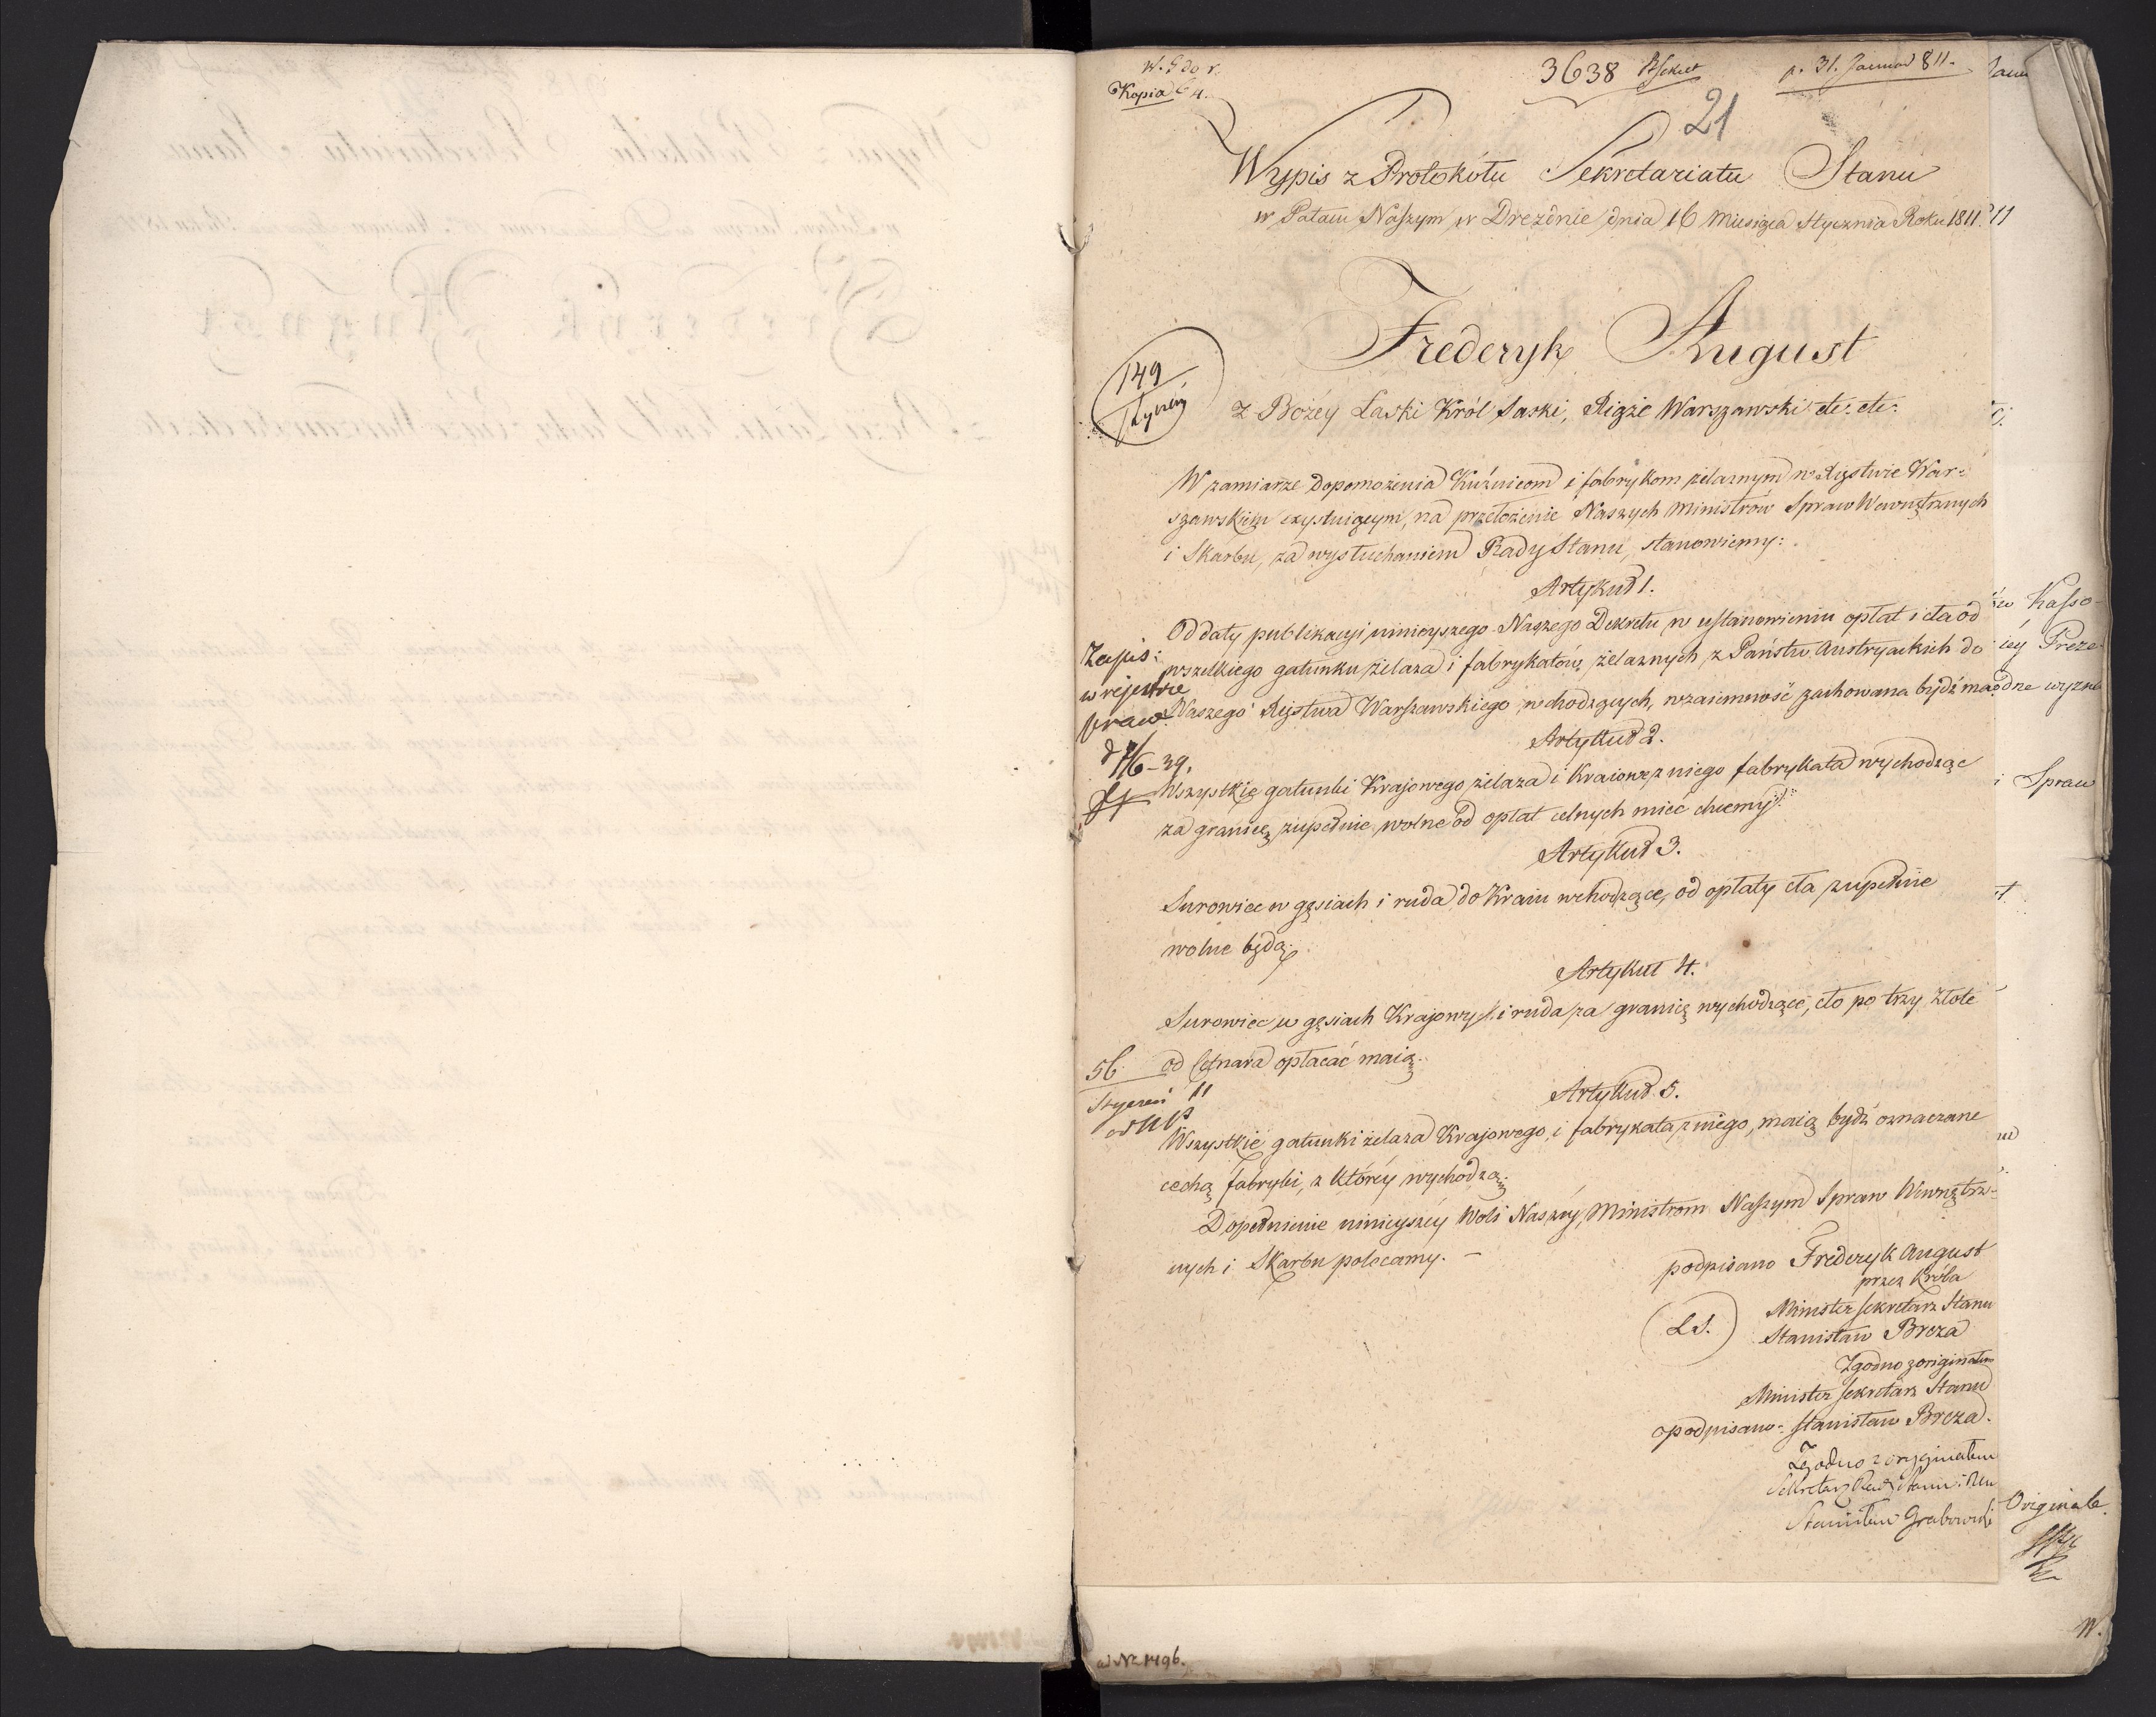 Kopia
3638
p. 31. Januar 811.
21
Wypis z Protokółu Sekretariatu Stanu
w Pałacu Naszym w Dreźnie dnia 16 Miesiąca Stycznia Roku 1811.
Frederyk August
z Bożey Łaski Król Saski, Xiąże Warszawski etc: etc:
149
Styczeń
W zamiarze dopomożenia Kuźnicom i fabrykom żelaznym w Xięstwie War-
szawskiem exystuiącym, na przełożenie Naszych Ministrów Spraw Wewnętrznych
i Skarbu, za wysłuchaniem Rady Stanu, stanowiemy:
Artykuł 1.
Od daty publikacyi ninieyszego Naszego Dekretu w ustanowieniu opłat i cła od
wszelkiego gatunku żelaza i fabrykatów żelaznych z Państw Austryackich do
Naszego Xięstwa Warszawskiego wchodzących, wzaiemność zachowana bydź ma.
Zapis:
w rejestrze
praw.
Artykuł 2.
Wszystkie gatunki Krajowego żelaza i Kraiowe z niego fabrykata wychodząc
za granicę, zupełnie wolne od opłat celnych mieć chcemy.
Artykuł 3.
Surowiec w gęsiach i ruda do Kraiu wchodzące, od opłaty cła zupełnie
wolne będą.
Artykuł 4.
Surowiec w gęsiach Krajowy i ruda za granicę wychodzące, cło po trzy złote
od Cetnara opłacać maią.
56
Styczeń 11
Artykuł 5.
Wszystkie gatunki żelaza Krajowego, i fabrykata z niego, maią bydź oznaczane
cechą fabryki, z którey wychodzą.
Dopełnienie ninieyszéy Woli Naszéy, Ministrom Naszym Spraw Wewnętrz-
nych i Skarbu polecamy. –
podpisano Frederyk August
przez Króla
Minister Sekretarz Stanu
(L.S.)
Stanisław Breza
Zgodno z originałem
Minister Sekretarz Stanu
podpisano: Stanisław Breza.
Zgodno z oryginałem
Sekretarz Rady Stanu
Stanisław Grabowski
11
Kasso-
iéy Preze
i Spraw
Originale
W.
ad Nr 1496.